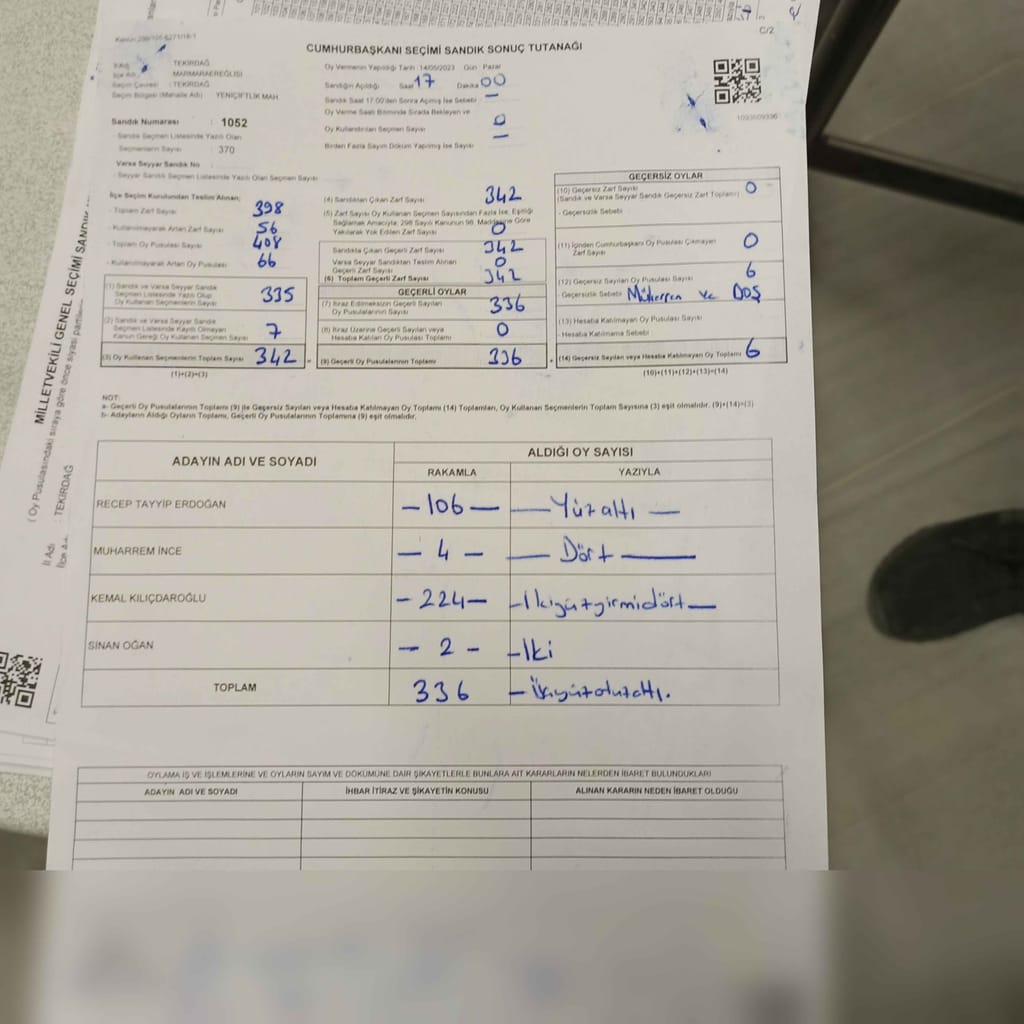 C/2
CUMHURBAŞKANI SEÇİMİ SANDIK SONUÇ TUTANAĞI
İli Adı : TEKİRDAĞ
İlçe Adı : MARMARAEREĞLİSİ
Seçim Çevresi : TEKİRDAĞ
Seçim Bölgesi (Mahalle Adı) YENİÇİFTLİK MAH.
Sandık Numarası : 1052
Sandık Seçmen Listesinde Yazılı Olan
Seçmenlerin Sayısı : 370
Varsa Seyyar Sandık No
Seyyar Sandık Listesinde Yazılı Olan Seçmen Sayısı
Oy Vermenin Yapıldığı Tarih : 14/05/2023 Gün : Pazar
Sandığın Açıldığı Saat 17 Dakika 00
Sandık Saat 17:00'den Sonra Açılmış İse Sebebi —
Oy Verme Saati Bitiminde Sırada Bekleyen ve
Oy Kullandırılan Seçmen Sayısı 0
Birden Fazla Sayım Döküm Yapılmış İse Sayısı —
1093609336
İlçe Seçim Kurulundan Teslim Alınan;
- Toplam Zarf Sayısı 398
- Kullanılmayarak Artan Zarf Sayısı 56
- Toplam Oy Pusulası Sayısı 408
- Kullanılmayarak Artan Oy Pusulası 66
(1) Sandık ve Varsa Seyyar Sandık
Seçmen Listesinde Yazılı Olup
Oy Kullanan Seçmenlerin Sayısı 335
(2) Sandık ve Varsa Seyyar Sandık
Seçmen Listesinde Kayıtlı Olmayan
Kanun Gereği Oy Kullanan Seçmen Sayısı 7
(3) Oy Kullanan Seçmenlerin Toplam Sayısı 342
(1)+(2)=(3)
(4) Sandıktan Çıkan Zarf Sayısı 342
(5) Zarf Sayısı Oy Kullanan Seçmen Sayısından Fazla İse, Eşitliği
Sağlamak Amacıyla; 298 Sayılı Kanunun 98. Maddesine Göre
Yakılarak Yok Edilen Zarf Sayısı 0
Sandıkta Çıkan Geçerli Zarf Sayısı 342
Varsa Seyyar Sandıktan Teslim Alınan
Geçerli Zarf Sayısı 0
(6) Toplam Geçerli Zarf Sayısı 342
GEÇERLİ OYLAR
(7) İtiraz Edilmeksizin Geçerli Sayılan
Oy Pusulalarının Sayısı 336
(8) İtiraz Üzerine Geçerli Sayılan veya
Hesaba Katılan Oy Pusulası Toplamı 0
(9) Geçerli Oy Pusulalarının Toplamı 336
GEÇERSİZ OYLAR
(10) Geçersiz Zarf Sayısı 0
(Sandık ve Varsa Seyyar Sandık Geçersiz Zarf Toplamı)
- Geçersizlik Sebebi
(11) İçinden Cumhurbaşkanı Oy Pusulası Çıkmayan
Zarf Sayısı 0
(12) Geçersiz Sayılan Oy Pusulası Sayısı 6
- Geçersizlik Sebebi Mükerren ve BOŞ
(13) Hesaba Katılmayan Oy Pusulası Sayısı
- Hesaba Katılmama Sebebi
(14) Geçersiz Sayılan veya Hesaba Katılmayan Oy Toplamı 6
(10)+(11)+(12)+(13)=(14)
NOT:
a- Geçerli Oy Pusulalarının Toplamı (9) ile Geçersiz Sayılan veya Hesaba Katılmayan Oy Toplamı (14) Toplamları, Oy Kullanan Seçmenlerin Toplam Sayısına (3) eşit olmalıdır. (9)+(14)=(3)
b- Adayların Aldığı Oyların Toplamı, Geçerli Oy Pusulalarının Toplamına (9) eşit olmalıdır.
ADAYIN ADI VE SOYADI ALDIĞI OY SAYISI
RAKAMLA YAZIYLA
RECEP TAYYİP ERDOĞAN — 106 — — Yüzaltı —
MUHARREM İNCE — 4 — — Dört —
KEMAL KILIÇDAROĞLU — 224 — — İkiyüzyirmidört —
SİNAN OĞAN — 2 — — İki
TOPLAM 336 — İkiyüzotuzaltı.
OYLAMA İŞ VE İŞLEMLERİNE VE OYLARIN SAYIM VE DÖKÜMÜNE DAİR ŞİKAYETLERLE BUNLARA AİT KARARLARIN NELERDEN İBARET BULUNDUKLARI
ADAYIN ADI VE SOYADI İHBAR İTİRAZ VE ŞİKAYETİN KONUSU ALINAN KARARIN NEDEN İBARET OLDUĞU
MİLLETVEKİLİ GENEL SEÇİMİ SANDIK
( Oy Pusulasındaki sıraya göre önce siyasi
İl Adı : TEKİRDAĞ